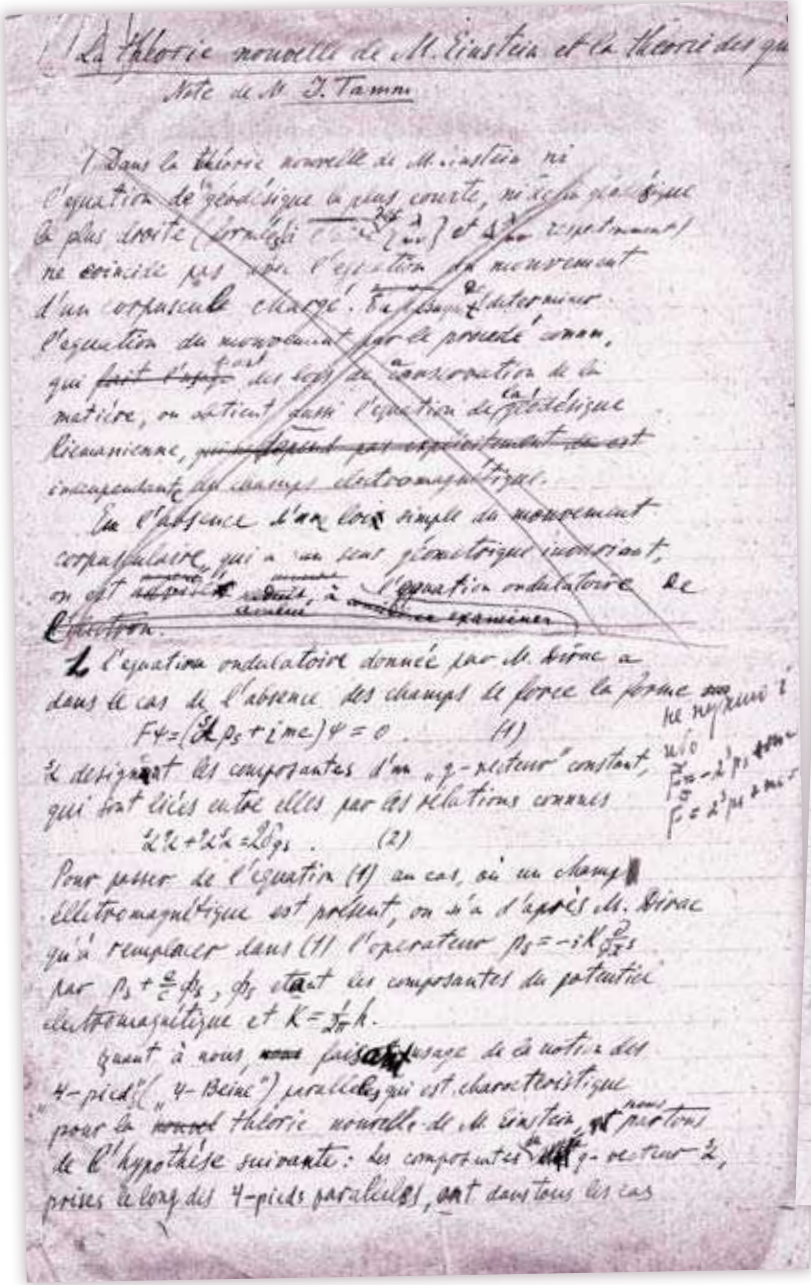 La théorie nouvelle de M. Einstein et la théorie des qu
Note de M. I. Tamm
Dans la théorie nouvelle de M. Einstein ni
l'equation de géodésique la plus courte, ni de la géodésique
la plus droite et respectivement)
ne coincide pas avec l'equation du mouvement
d'un corpuscule chargé. determiner
l'equation du mouvement par le procedé connu,
qui des lois de conservation de la
matiére, on obtient aussi l'equation de la géodésique
Riemanienne, est
independante du champs electromagnétique.
En l'absence d'une loi simple du mouvement
corpusculaire, qui a un sens géometrique invariant,
on est amené à l'equation ondulatoire de
l'electron.
L'equation ondulatoire donnée par M. Dirac a
dans le cas de l'absence des champs de force la forme
Fψ = (α pₛ + imc)ψ = 0. (1)
designant les composantes d'un „q-vecteur" constant,
qui sont liées entre elles par les rélations connues
(2)
Pour passer de l'equation (1) au cas, où un champ
éllectromagnétique est présent, on n'a d'après M. Dirac
qu'à remplacer dans (1) l'operateur pₛ = -iK ∂/∂xˢ
par pₛ + e/c ϕₛ, ϕₛ etant les composantes du potentiel
electromagnétique et K = 1/2π h.
Quant à nous, faisant usage de la notion des
„4-pieds" („4-Beine") paralleles, qui est characteristique
pour la théorie nouvelle de M. Einstein, nous partons
de l'hypothése suivante: les composantes q-vecteur
prises le long des 4-pieds paralleles, ont dans tous les cas